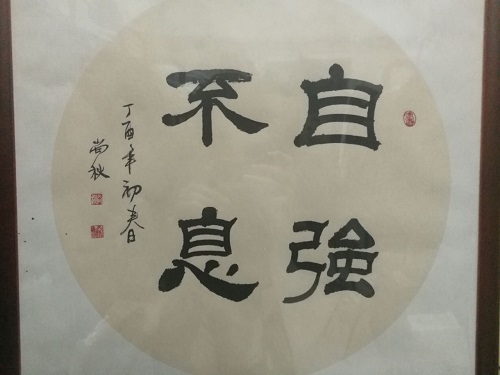 自強
不息
丁酉年初春日
尚秋